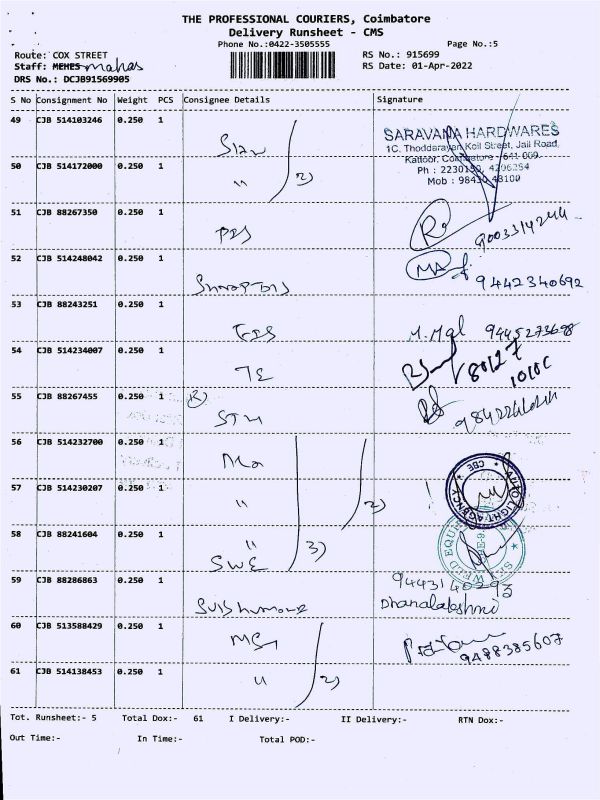 THE PROFESSIONAL COURIERS, Coimbatore
Delivery Runsheet - CMS
Phone No.:0422-3505555 Page No.:5
Route: COX STREET RS No.: 915699
Staff: MEHES mahas RS Date: 01-Apr-2022
DRS No.: DCJB91569905
S No Consignment No Weight PCS Consignee Details Signature
49 CJB 514103246 0.250 1
SARAVANA HARDWARES
1C, Thoddarayan Koil Street, Jail Road,
Kattoor, Coimbatore - 641 009.
50 CJB 514172000 0.250 1 " 2)
Ph : 2230150, 4296284
Mob : 98430 43100
51 CJB 88267350 0.250 1
52 CJB 514248042 0.250 1 MA 9442340692
53 CJB 88243251 0.250 1 M. Mgl
54 CJB 514234007 0.250 1 TE 80127
55 CJB 88267455 0.250 1
56 CJB 514232700 0.250 1
AUTOLIGHT AGENCY * CBE *
57 CJB 514230207 0.250 1 " 2)
58 CJB 88241604 0.250 1 " SWE 3)
59 CJB 88286863 0.250 1
Dhanalakshmi
60 CJB 513588429 0.250 1 9488385607
61 CJB 514138453 0.250 1 " 2)
Tot. Runsheet:- 5 Total Dox:- 61 I Delivery:- II Delivery:- RTN Dox:-
Out Time:- In Time:- Total POD:-